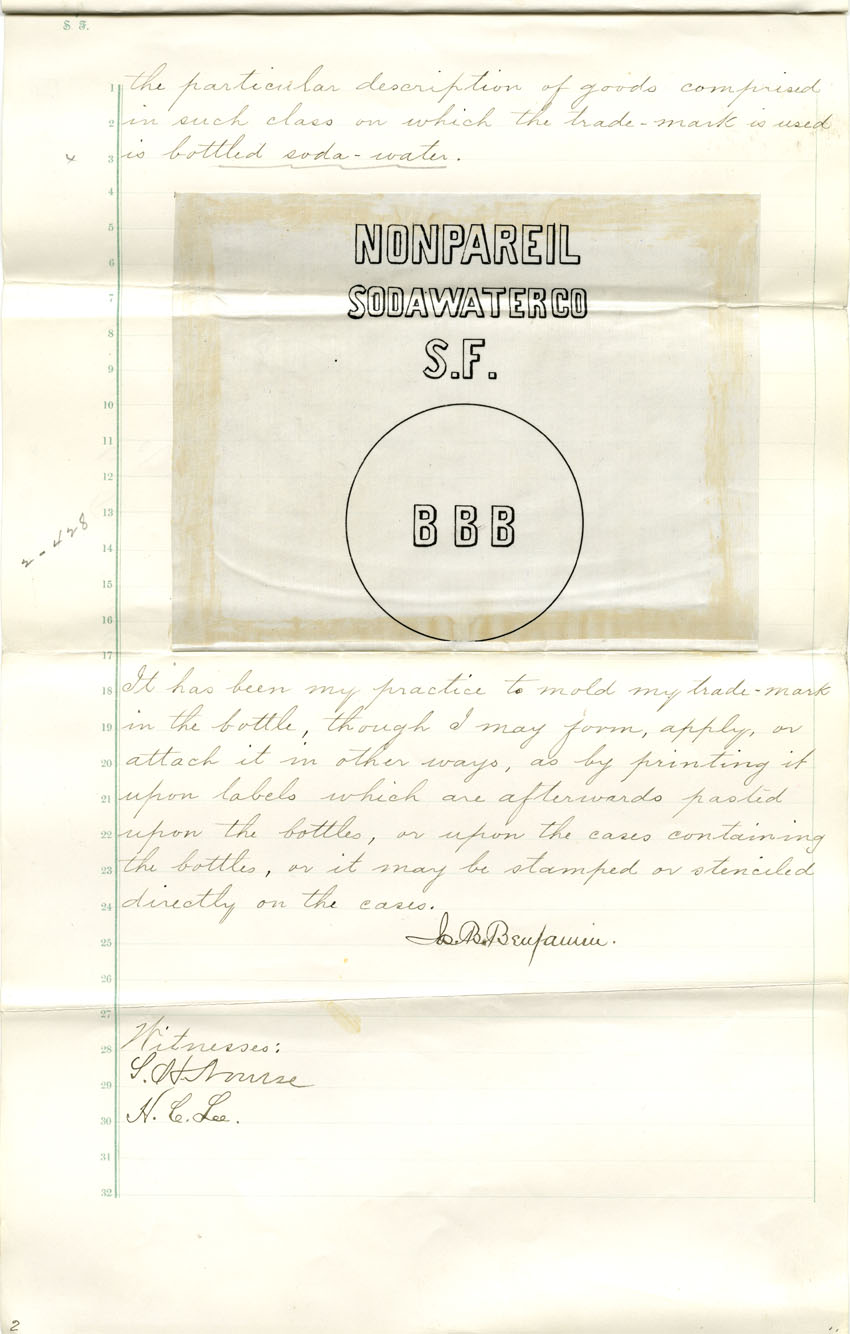 S. F.
1 the particular description of goods comprised
2 in such class on which the trade-mark is used
x 3 is bottled soda-water.
4
5
NONPAREIL
6
7 SODAWATER CO
8
S.F.
9
10
11
12
13 BBB
2-428
14
15
16
17
18 It has been my practice to mold my trade-mark
19 in the bottle, though I may form, apply, or
20 attach it in other ways, as by printing it
21 upon labels which are afterwards pasted
22 upon the bottles, or upon the cases containing
23 the bottles, or it may be stamped or stenciled
24 directly on the cases.
25 Jos. B. Benjamin.
26
27
28 Witnesses:
29 S. H. Nourse
30 H. C. Lee.
31
32
2